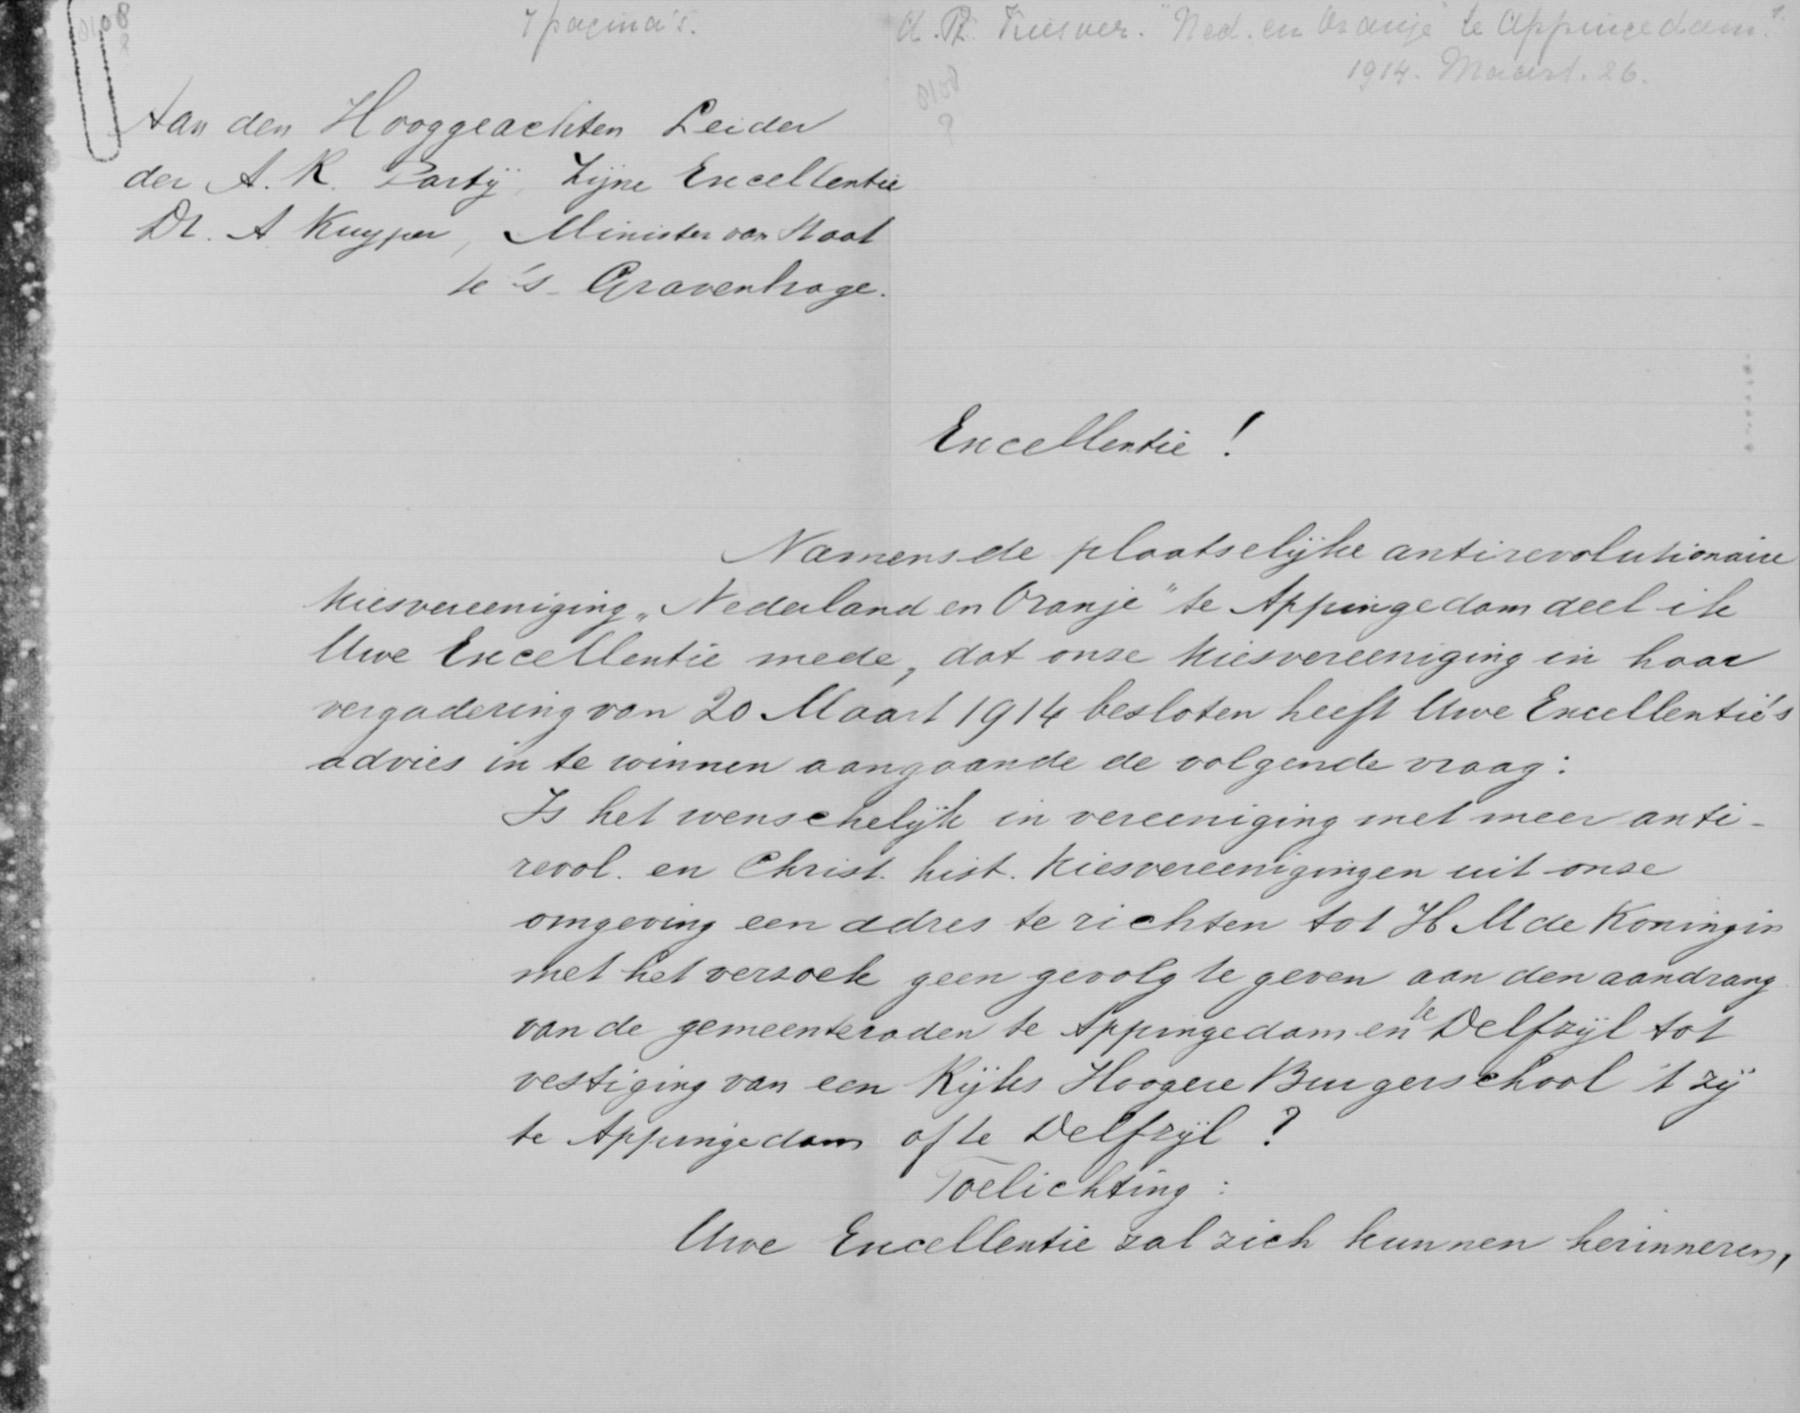 0108
7 pagina's.
A.R. Kiesver. "Ned. en Oranje" te Appingedam.
1914. Maart. 26.
0108
?
Aan den Hooggeachten Leider
der A. R. Partij, Zijne Excellentie
Dr. A Kuyper, Minister van Staat
te 's-Gravenhage.
Excellentie!
Namens de plaatselijke antirevolutionaire
kiesvereeniging „Nederland en Oranje" te Appingedam deel ik
Uwe Excellentie mede, dat onze kiesvereeniging in haar
vergadering van 20 Maart 1914 besloten heeft Uwe Excellentie's
advies in te winnen aangaande de volgende vraag:
Is het wenschelijk in vereeniging met meer anti-
revol. en Christ. hist. kiesvereenigingen uit onze
omgeving een adres te richten tot H M de Koningin
met het verzoek geen gevolg te geven aan den aandrang
van de gemeenteraden te Appingedam en te Delfzijl tot
vestiging van een Rijks Hoogere Burgerschool 't zij
te Appingedam of te Delfzijl?
Toelichting:
Uwe Excellentie zal zich kunnen herinneren,